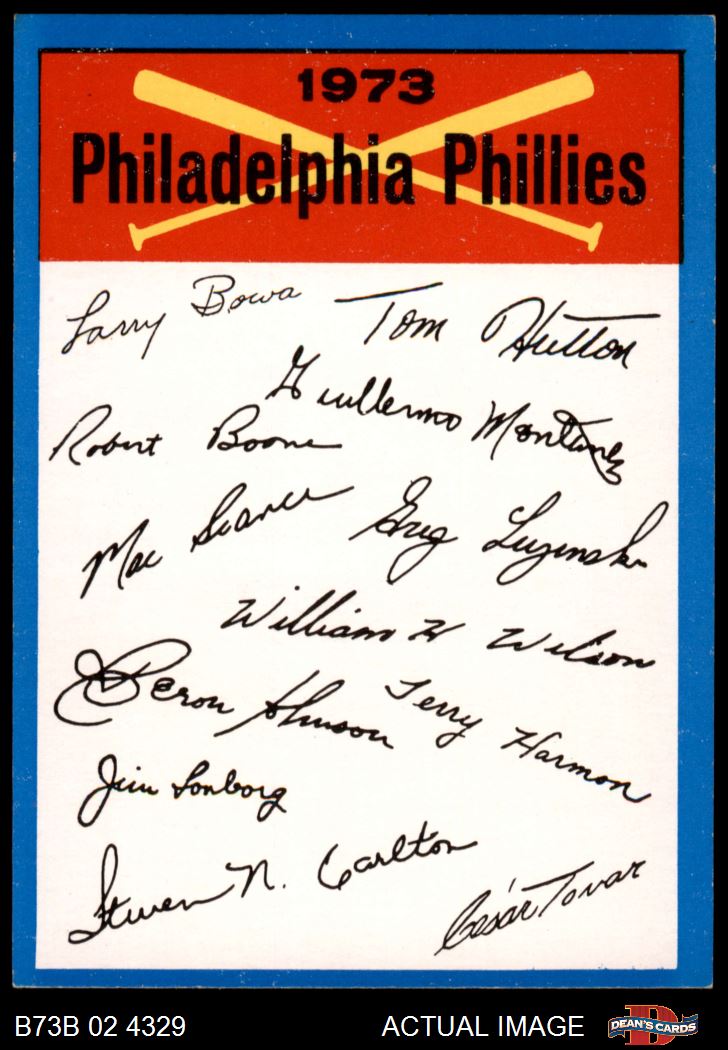 1973
Philadelphia Phillies
Larry Bowa
Tom Hutton
Guillermo Montanez
Robert Boone
Mac Scarce
Greg Luzinski
William H Wilson
Deron Johnson
Terry Harmon
Jim Lonborg
Steven N. Carlton
César Tovar
B73B 02 4329
ACTUAL IMAGE
D
DEAN'S CARDS